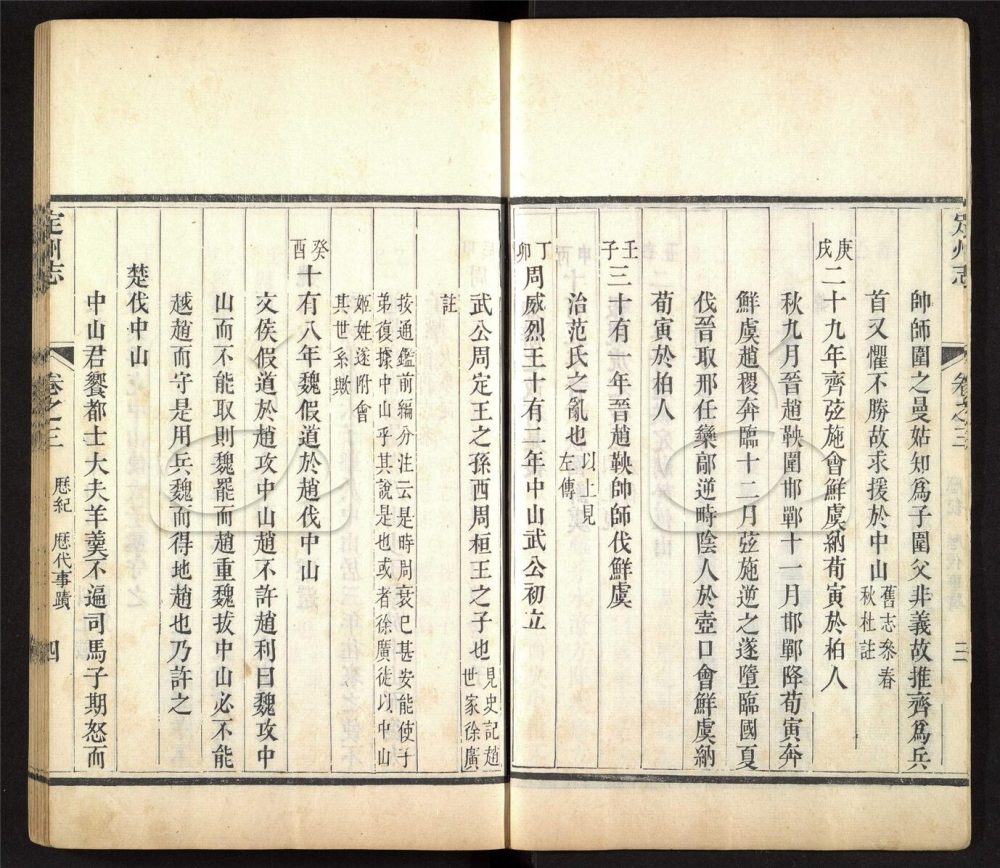 定州志
卷之三
三
帥師圍之曼姑知爲子圍父非義故推齊爲兵
首又懼不勝故求援於中山舊志叅春
秋杜註
庚戌二十九年齊弦施會鮮虞納荀寅於柏人
秋九月晉趙鞅圍邯鄲十一月邯鄲降荀寅奔
鮮虞趙稷奔臨十二月弦施逆之遂墮臨國夏
伐晉取邢任欒鄗逆畤陰人於壺口會鮮虞納
荀寅於柏人
壬子三十有一年晉趙鞅帥師伐鮮虞
治范氏之亂也以上見
左傳
丁卯周威烈王十有二年中山武公初立
武公周定王之孫西周桓王之子也見史記趙
世家徐廣
註
按通鑑前編分注云是時周衰已甚安能使子
弟復據中山乎其說是也或者徐廣徒以中山
姬姓遂附會
其世系歟
癸酉十有八年魏假道於趙伐中山
文侯假道於趙攻中山趙不許趙利曰魏攻中
山而不能取則魏罷而趙重魏拔中山必不能
越趙而守是用兵魏而得地趙也乃許之
楚伐中山
中山君饗都士大夫羊羹不遍司馬子期怒而
定州志
卷之三
歷紀 歷代事蹟
四